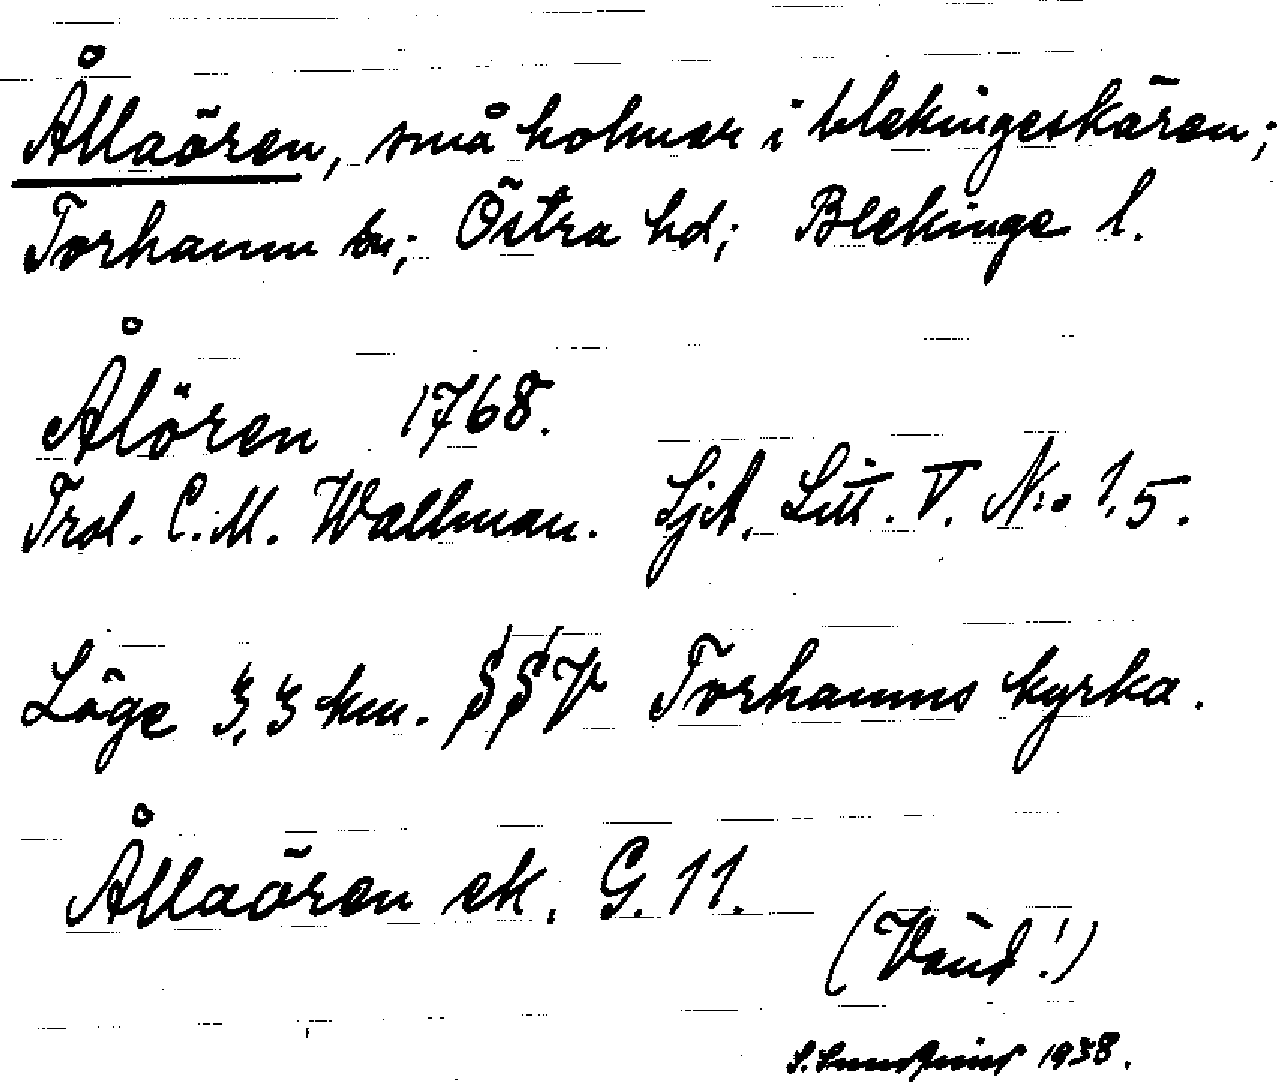 Ållaören, små holmar i blekingeskären;
Torhamn sn; Östra hd; Blekinge l.
Ålören 1768.
Trol. C. M. Wallman. SjA. Litt. V. N:o 1,5.
Läge 3,3 km. SSV Torhamns kyrka.
Ållaören ek. G. 11.
(Vänd!)
1938.